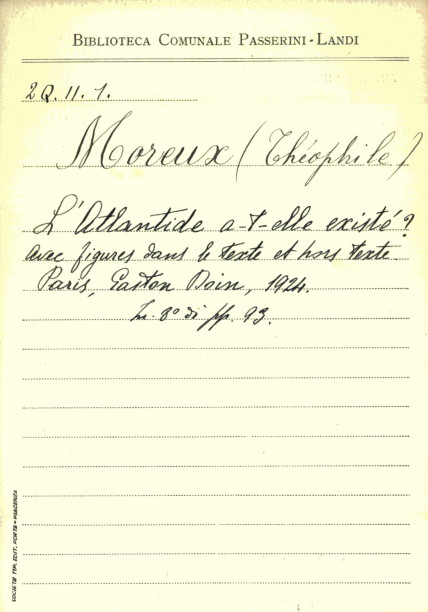 BIBLIOTECA COMUNALE PASSERINI-LANDI
2Q. 11. 1.
Moreux (Théophile)
L'Atlantide a-t-elle existé?
avec figures dans le texte et hors texte.
Paris, Gaston Doin, 1924.
In-8° di pp. 93.
SOCIETÀ TIP. EDIT. PORTA - PIACENZA